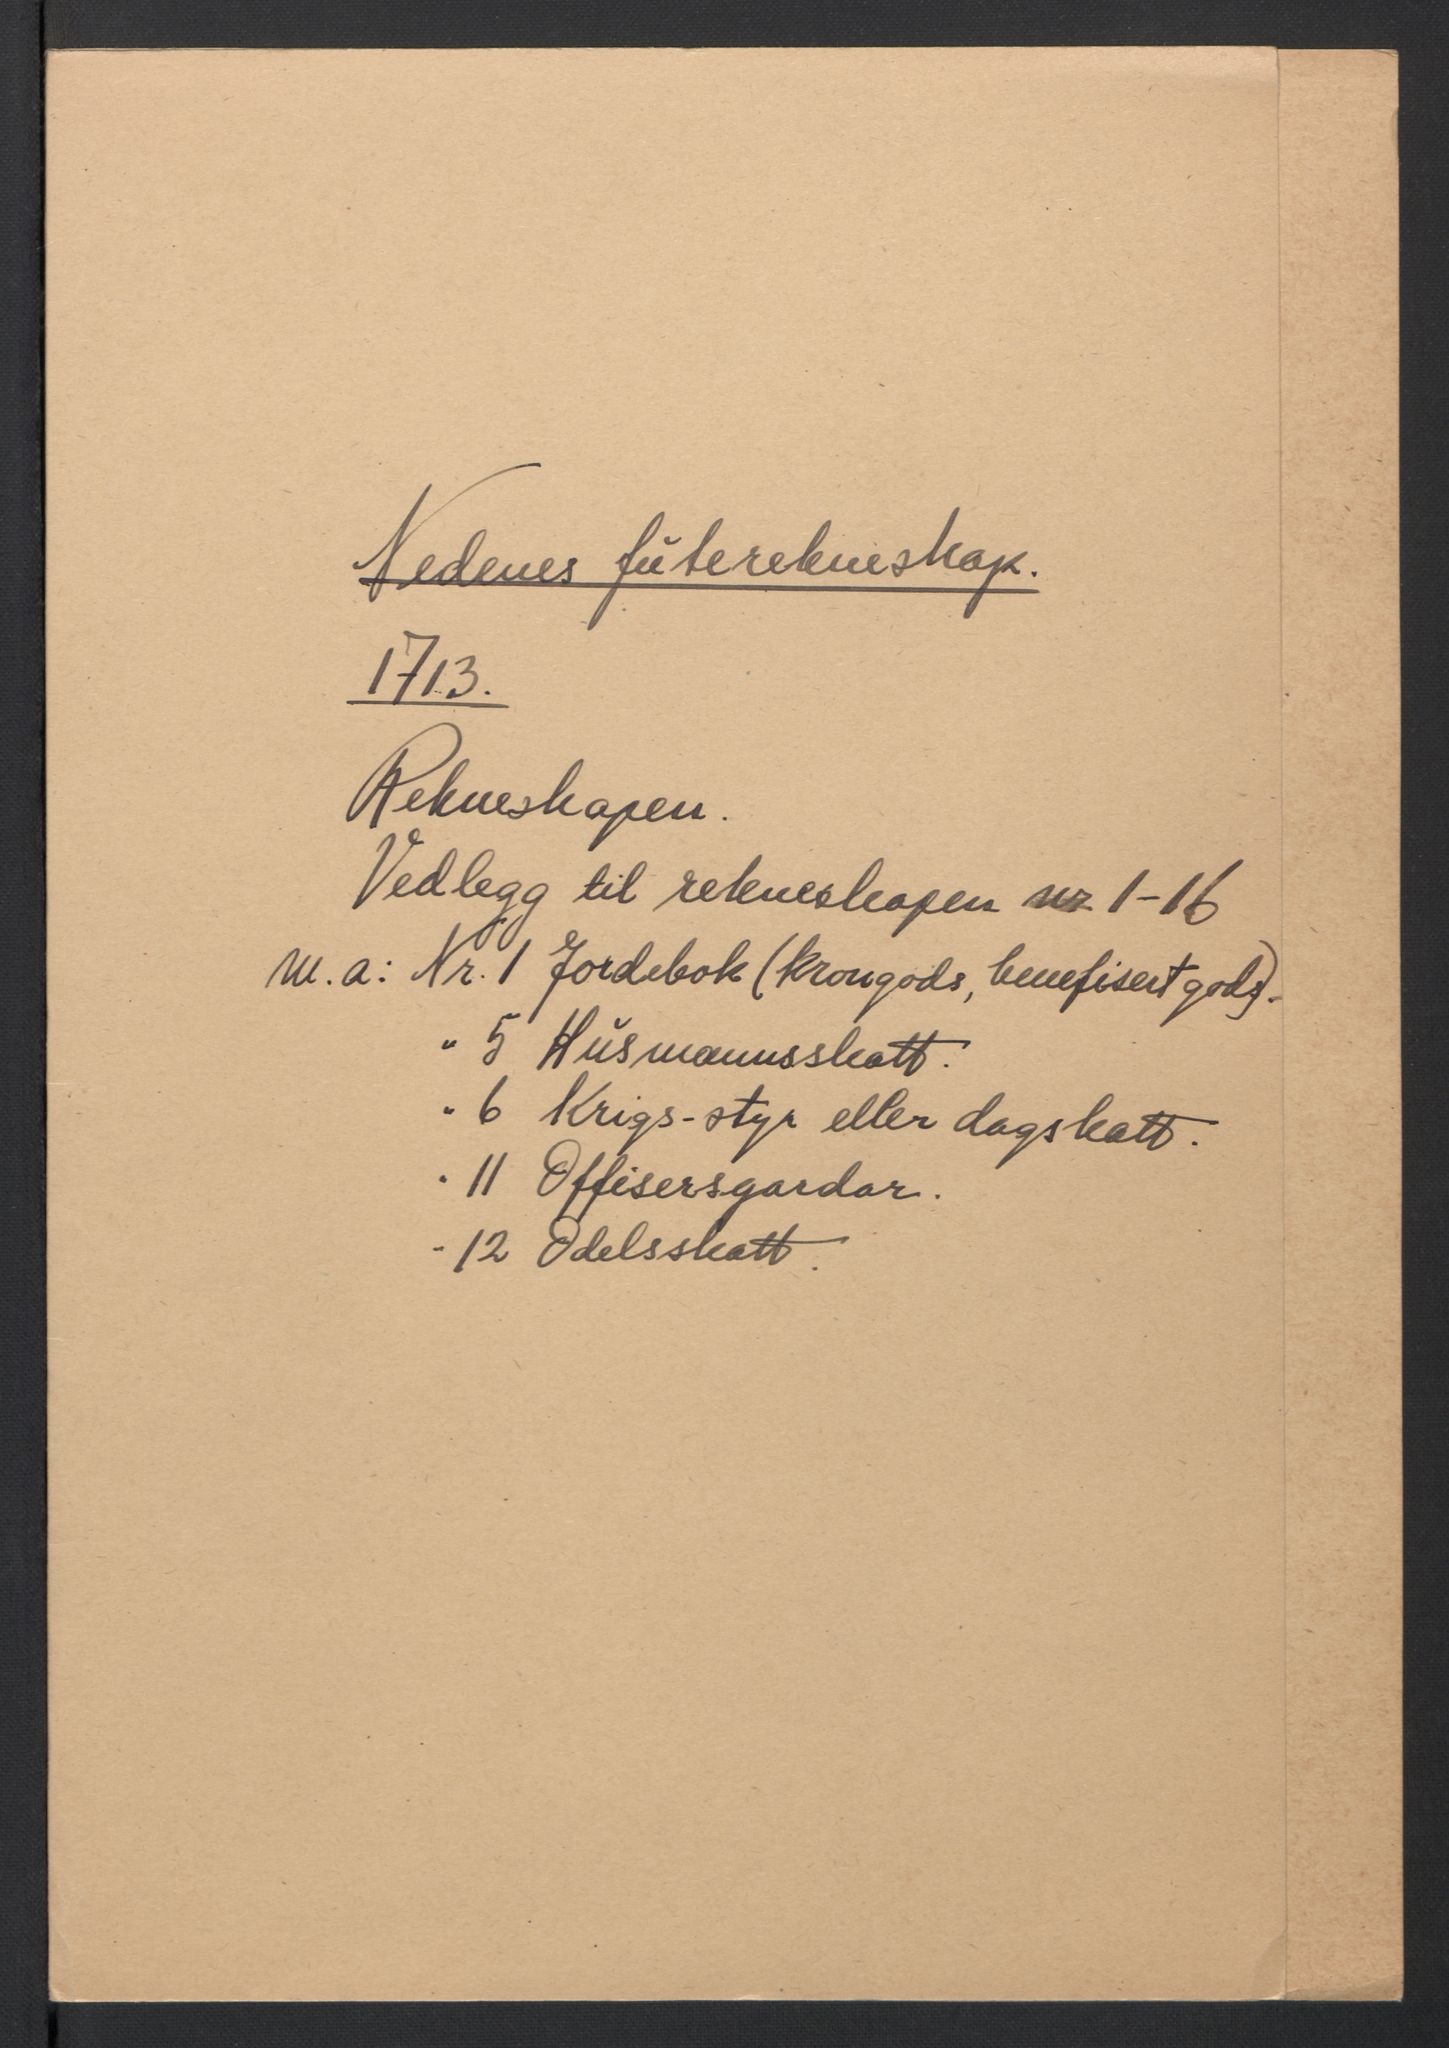 Nedenes futerekneskap.
1713.
Rekneskapen.
Vedlegg til rekneskapen nr 1-16
m.a: Nr. 1 Jordebok (krongods, benefisert gods).
" 5 Husmannsskatt.
" 6 Krigs-styr eller dagskatt.
" 11 Offisersgardar.
" 12 Odelsskatt.